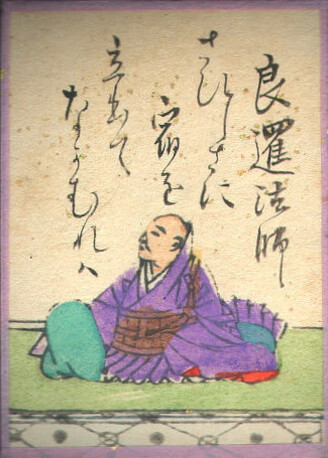 良暹法師
さひしさに
宿を
立出て
なかむれは